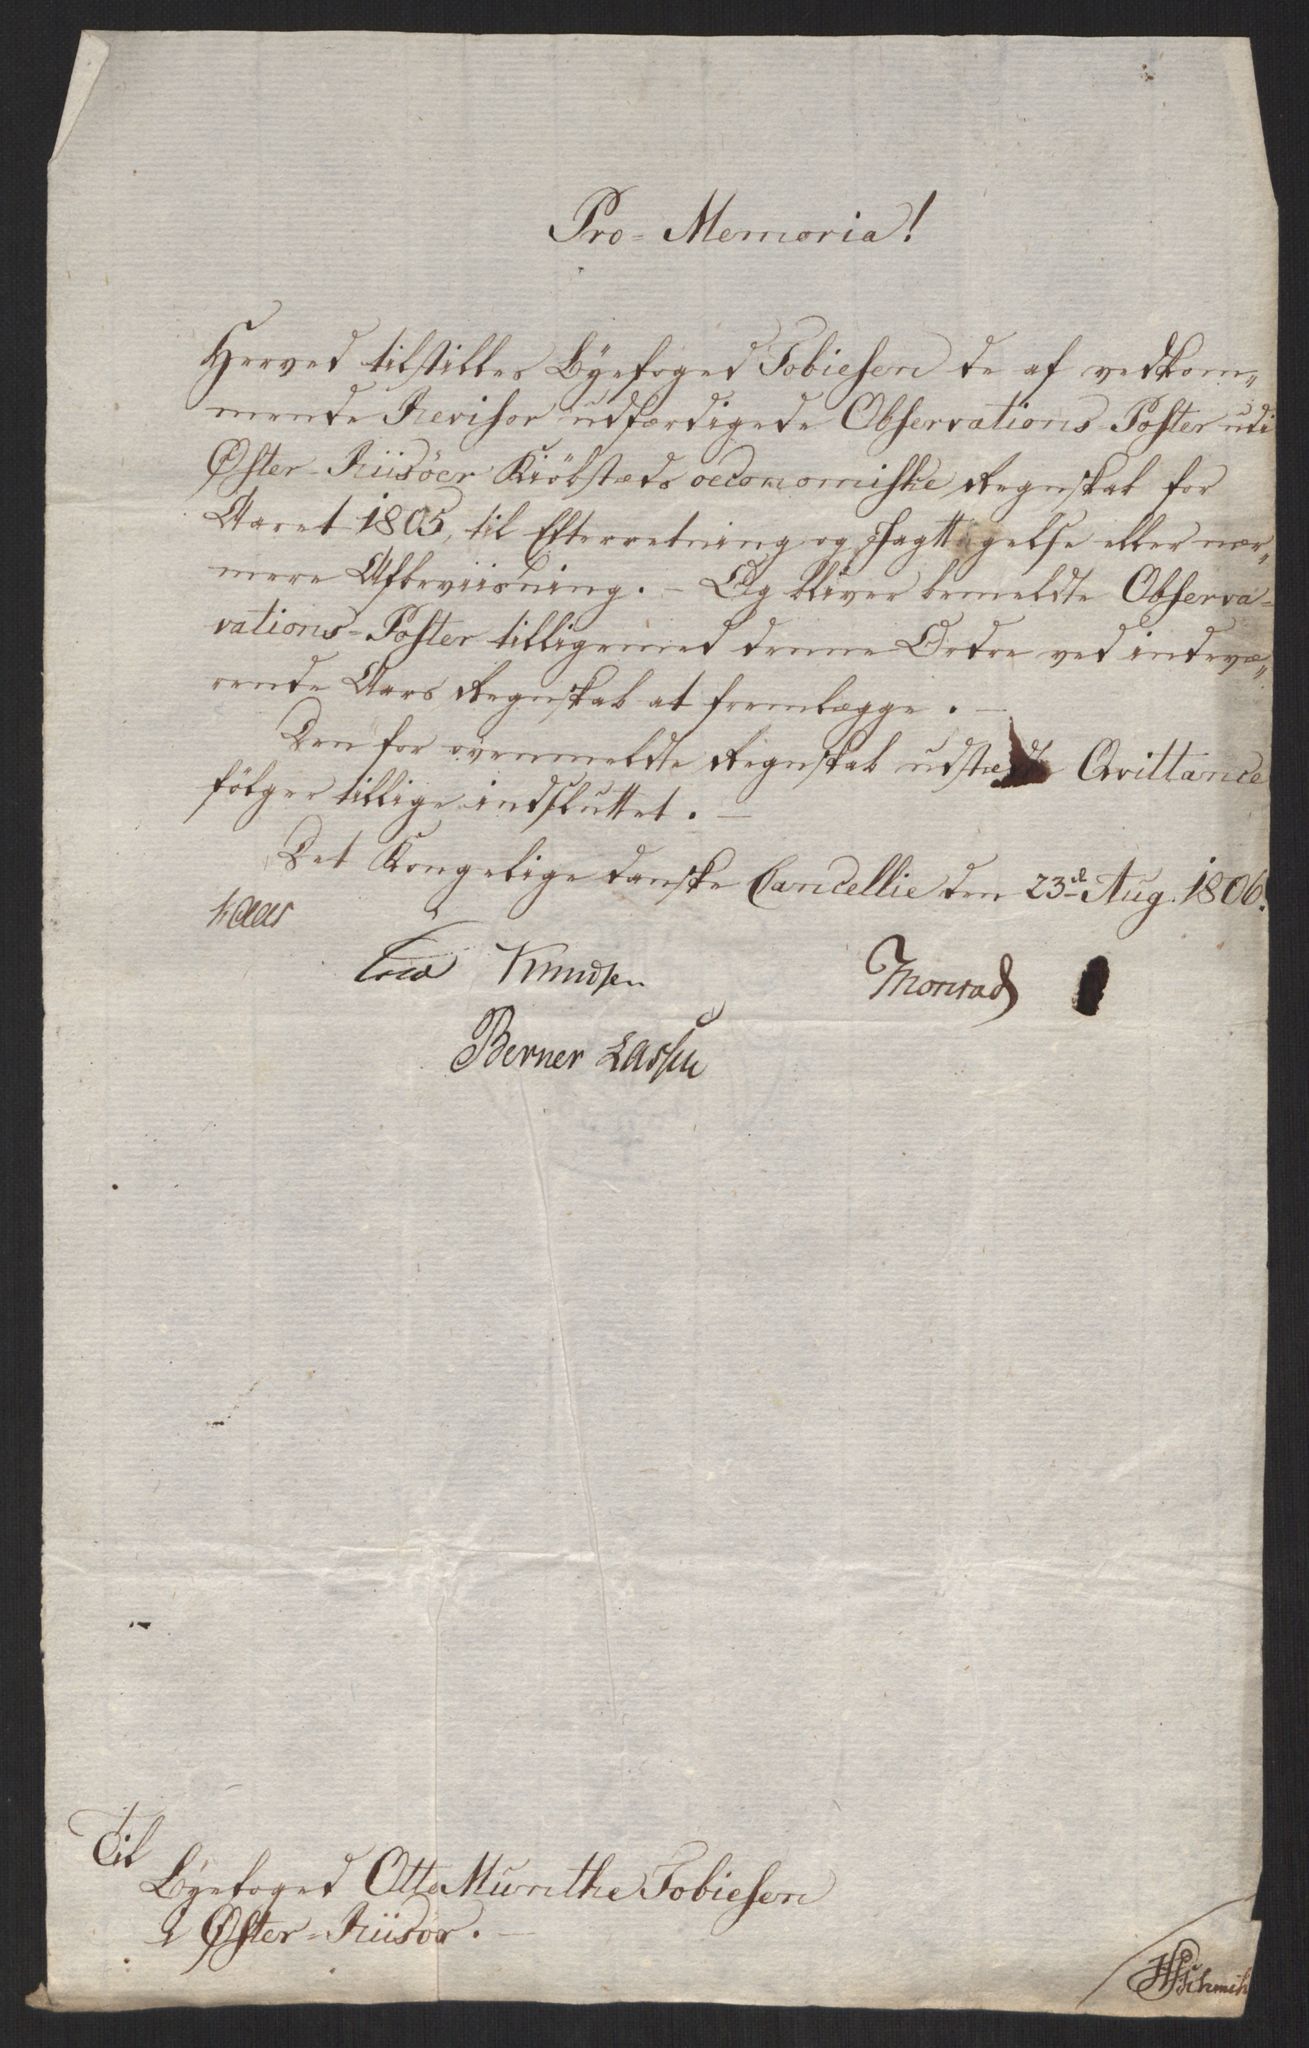 Pro-Memoria!
Herved tilstilles Byefoged Tobiesen de af vedkom-
mende Revisor udfærdigede Observations-Poster udi
Øster-Riisöer Kiöbstæds oeconomiske Regnskab for
Aaret 1805, til Efterretning og Jagttagelse eller nær-
mere Afbeviisning. - Og bliver bemeldte Observa-
vations-Poster tilligemed denne Ordre ved indevæ-
rende Aars Regnskab at fremlægge. -
Den for ovenmeldte Regnskab udstædte Qvittance
fölger tillige indsluttet. -
Det Kongelige danske Cancellie den 23d Aug. 1806.
Kaas
Knudsen Monrad
Berner Lassen
Til
Byefoged Otto Munthe Tobiesen
i Øster-Riisör. -
Schmidt